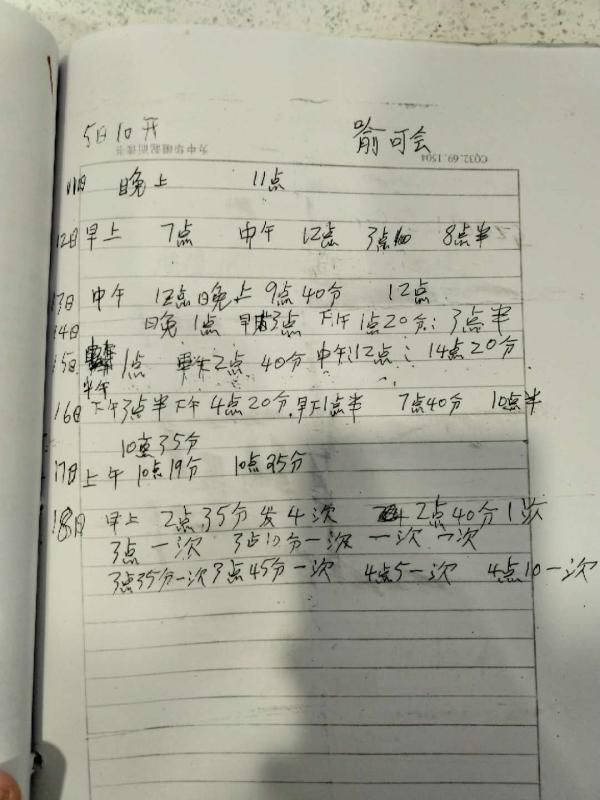 5日10开 喻可会
为中华崛起而读书 CQ32.69.1504
11日 晚上 11点
12日早上 7点 中午 12点 3点 8点半
13日 中午 12点晚上9点40分 12点
14日 日晚1点 3点 下午1点20分:3点半
15日 1点 2点40分 中午:12点:14点20分
半午
16日 下午3点半下午4点20分.早下1点半 7点40分 10点半
10点35分
17日上午10点19分 10点35分
18日 早上 2点35分发4次 2点40分1次
3点一次 3点10分一次 一次 一次
3点35分一次3点45分一次 4点5一次 4点10一次